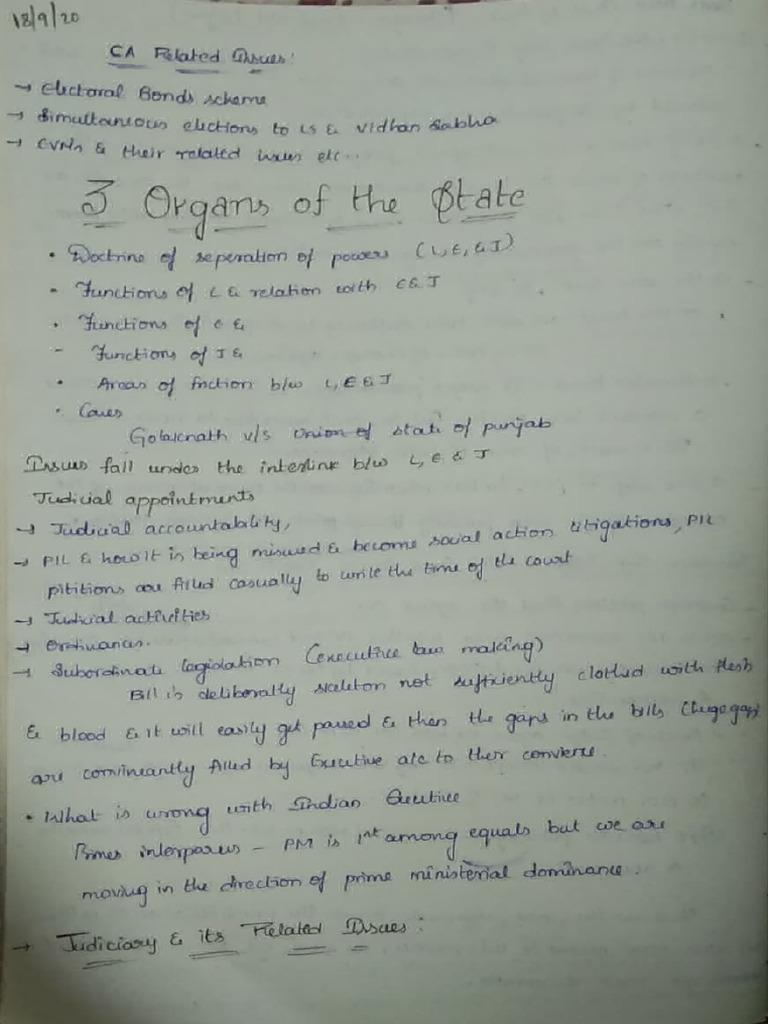 18/9/20
CA Related Issues:
→ Electoral Bonds scheme
→ Simultaneous elections to LS & Vidhan Sabha
→ EVMs & their related issues etc..
3 Organs of the State
• Doctrine of seperation of powers (L, E, & J)
- Functions of L & relation with E & J
• Functions of E &
- Functions of J &
• Areas of friction b/w L, E & J
• Cases
Golaknath v/s Union of state of punjab
Issues fall under the interlink b/w L, E & J
Judicial appointments
→ Judicial accountability,
→ PIL & how it is being misused & become social action litigations, PIL
pititions are filled casually to the time of the court
→ Judicial activities
→ Ordinances.
→ Subordinate legislation (executive law making)
Bill is deliberally skeleton not sufficiently clothed with flesh
& blood & it will easily get passed & then the gaps in the bills (huge gap)
are convineantly filled by Executive a/c to their
• What is wrong with Indian Executive
Primes interpares - PM is 1st among equals but we are
moving in the direction of prime ministerial dominance.
→ Judiciary & its Related Issues: